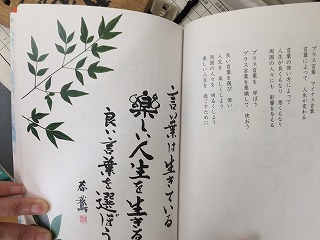 プラス言葉 マイナス言葉
言葉によって 人生が変わる
言葉の使い方によって
人生が良くもなり 悪くもなり
周囲の人々にも 影響を与える
プラス言葉を 学ぼう
プラス言葉を意識して 使おう
良い言葉を選び 使い
人生を 楽しくしよう
周囲の人を 明るくしよう
楽しい人生を 過ごすために
言葉は生きている
楽しい人生を生きる
良い言葉を選ぼう